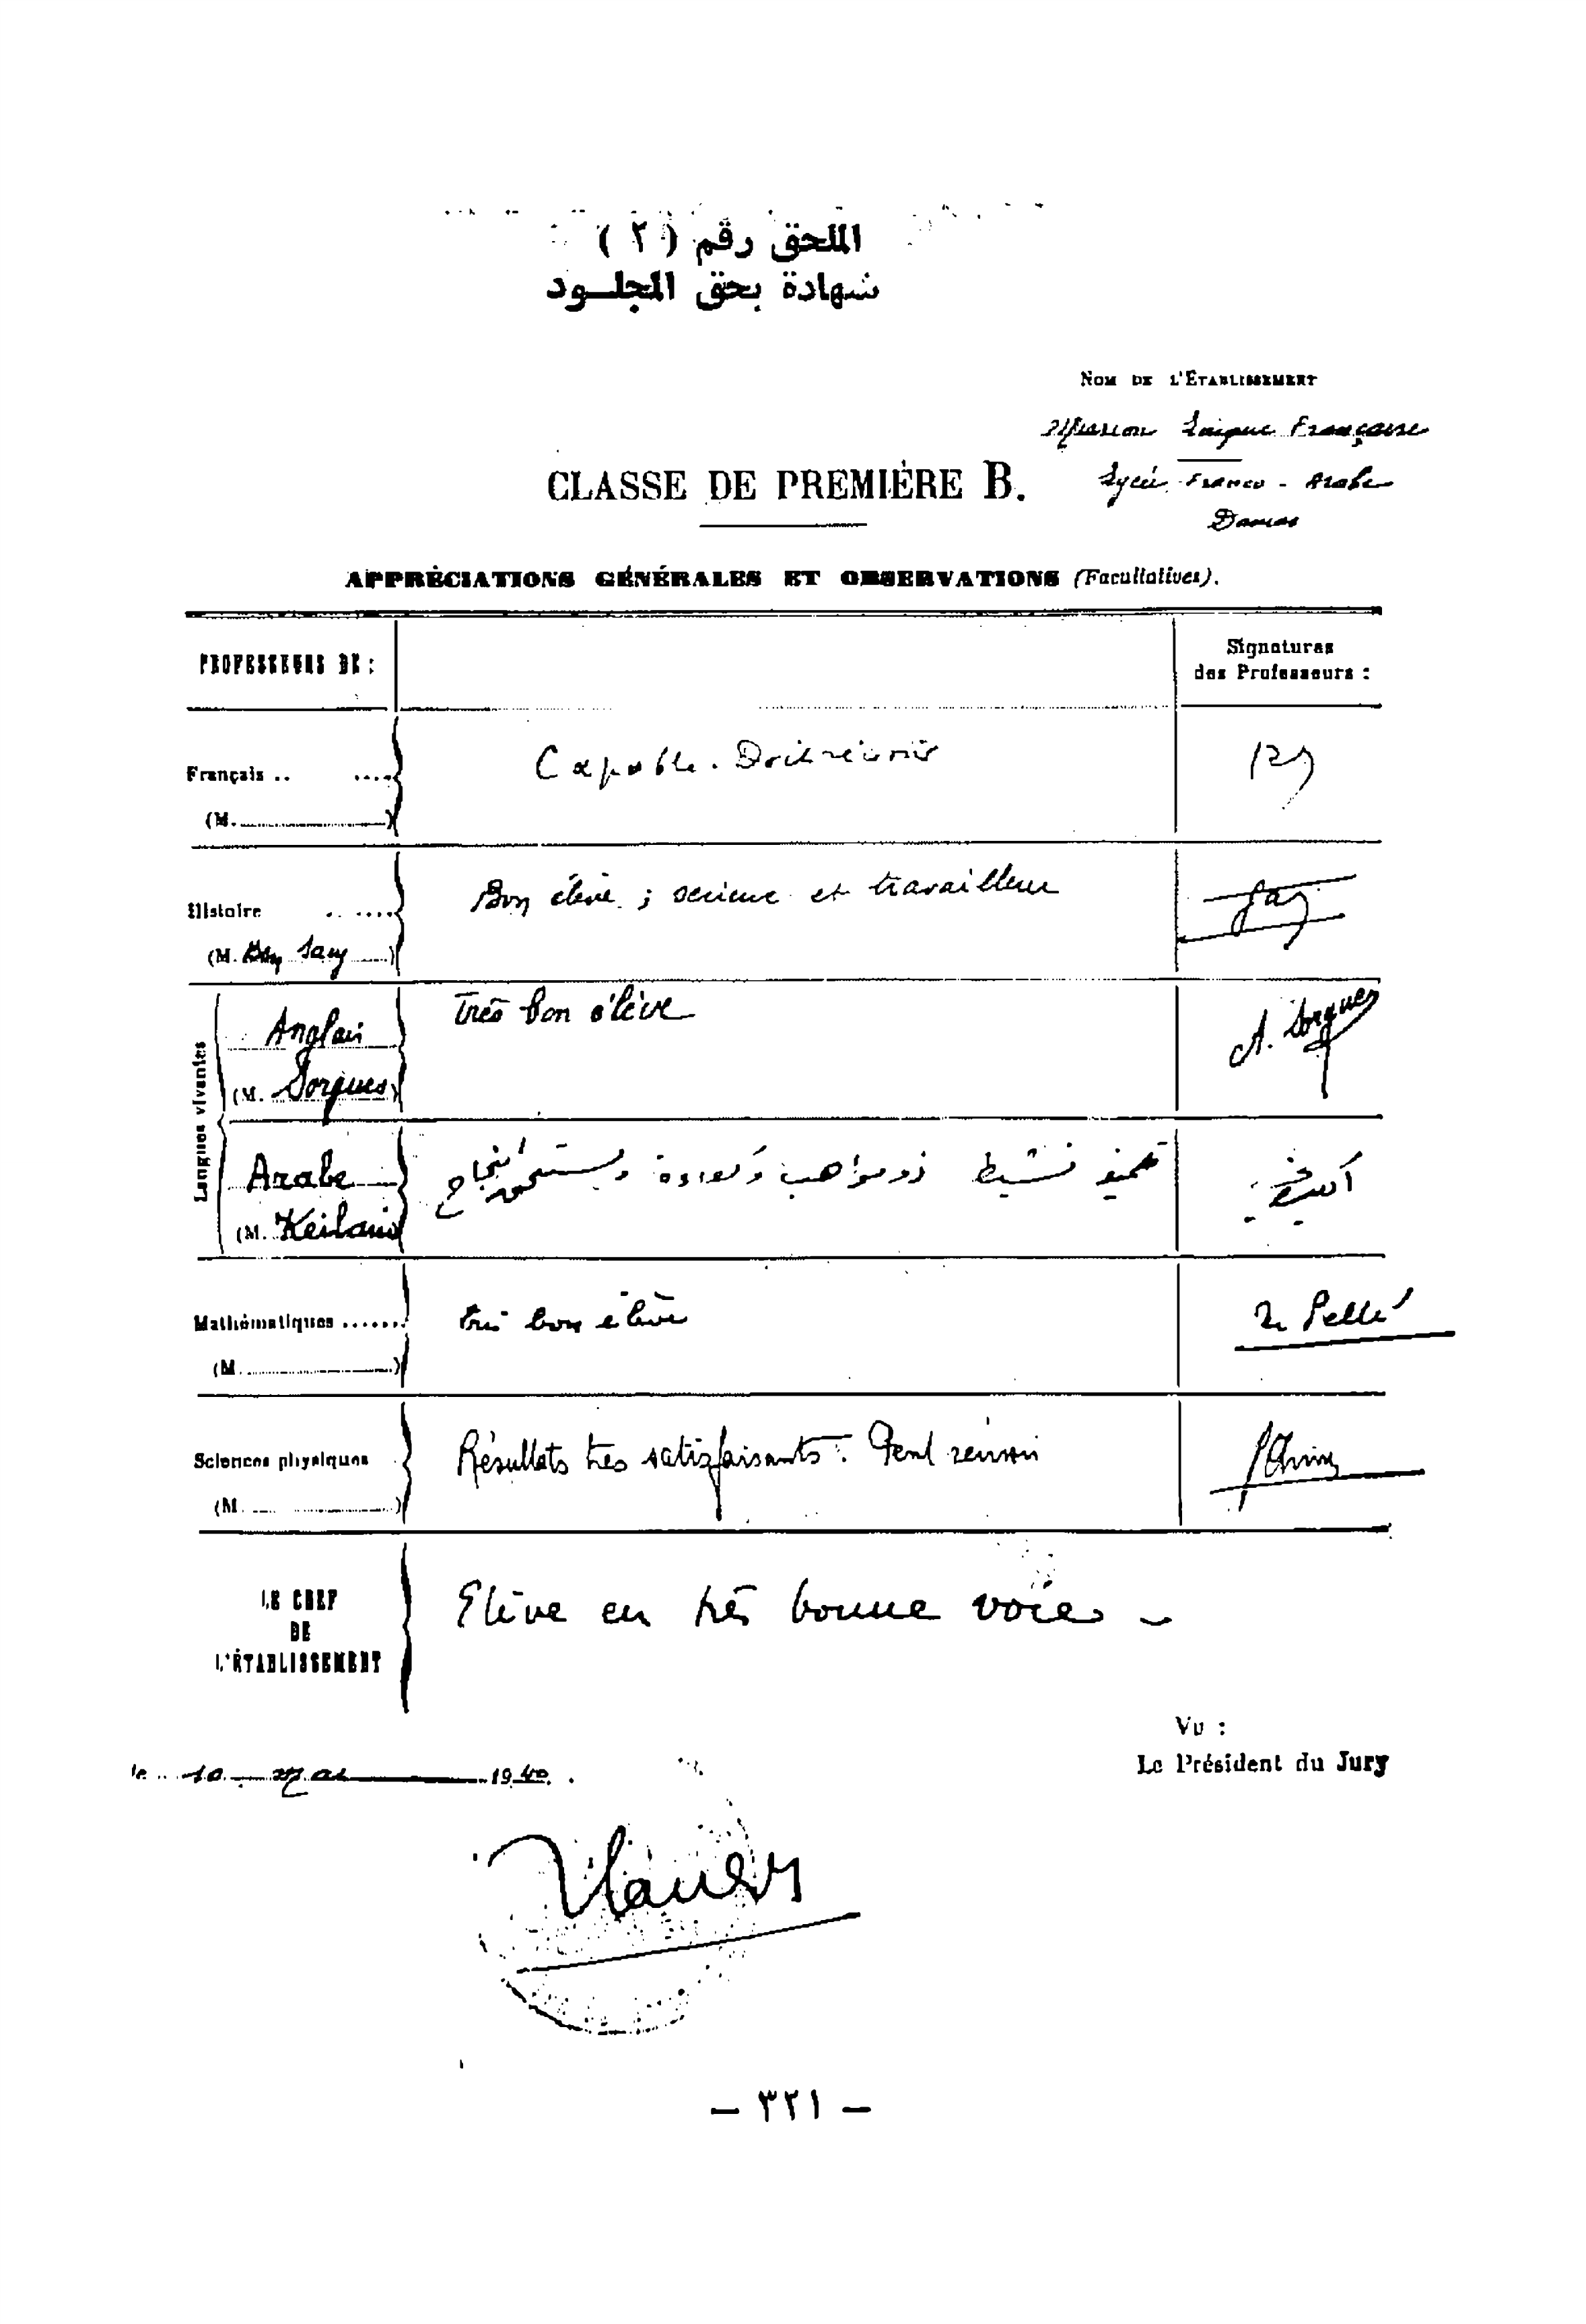 الملحق رقم ( ٢ )
شهادة بحق المجلـود
NOM DE L'ÉTABLISSEMENT
Mission Laïque Française
Lycée Franco - Arabe
Damas
CLASSE DE PREMIÈRE B.
APPRÉCIATIONS GÉNÉRALES ET OBSERVATIONS (Facultatives).
PROFESSEURS DE :
Signatures
des Professeurs :
Français .. ....
Capable. Doit réussir
(M. )
Histoire .. ....
Bon élève ; sérieux et travailleur
(M. Sauy )
Langues vivantes
Anglais
Très bon élève
A. Sorgues
(M. Sorgues)
Arabe
تلميذ نشيط ذو مواهب ويستحق النجاح
(M. Keilani)
Mathématiques ......
très bon élève
Pellé
(M. )
Sciences physiques
Résultats très satisfaisants. Peut réussir
(M. )
LE CHEF
DE
L'ÉTABLISSEMENT
Elève en très bonne voie. -
Vu :
Le Président du Jury
le 10 Mai 1940.
— ٣٢١ —